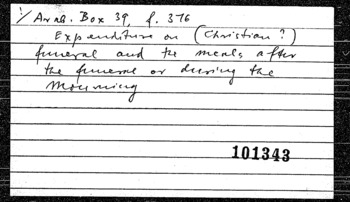 1/ Arab. Box 39, f. 376
Expenditure on (Christian?)
funeral and the meals after
the funeral or during the
mourning
101343